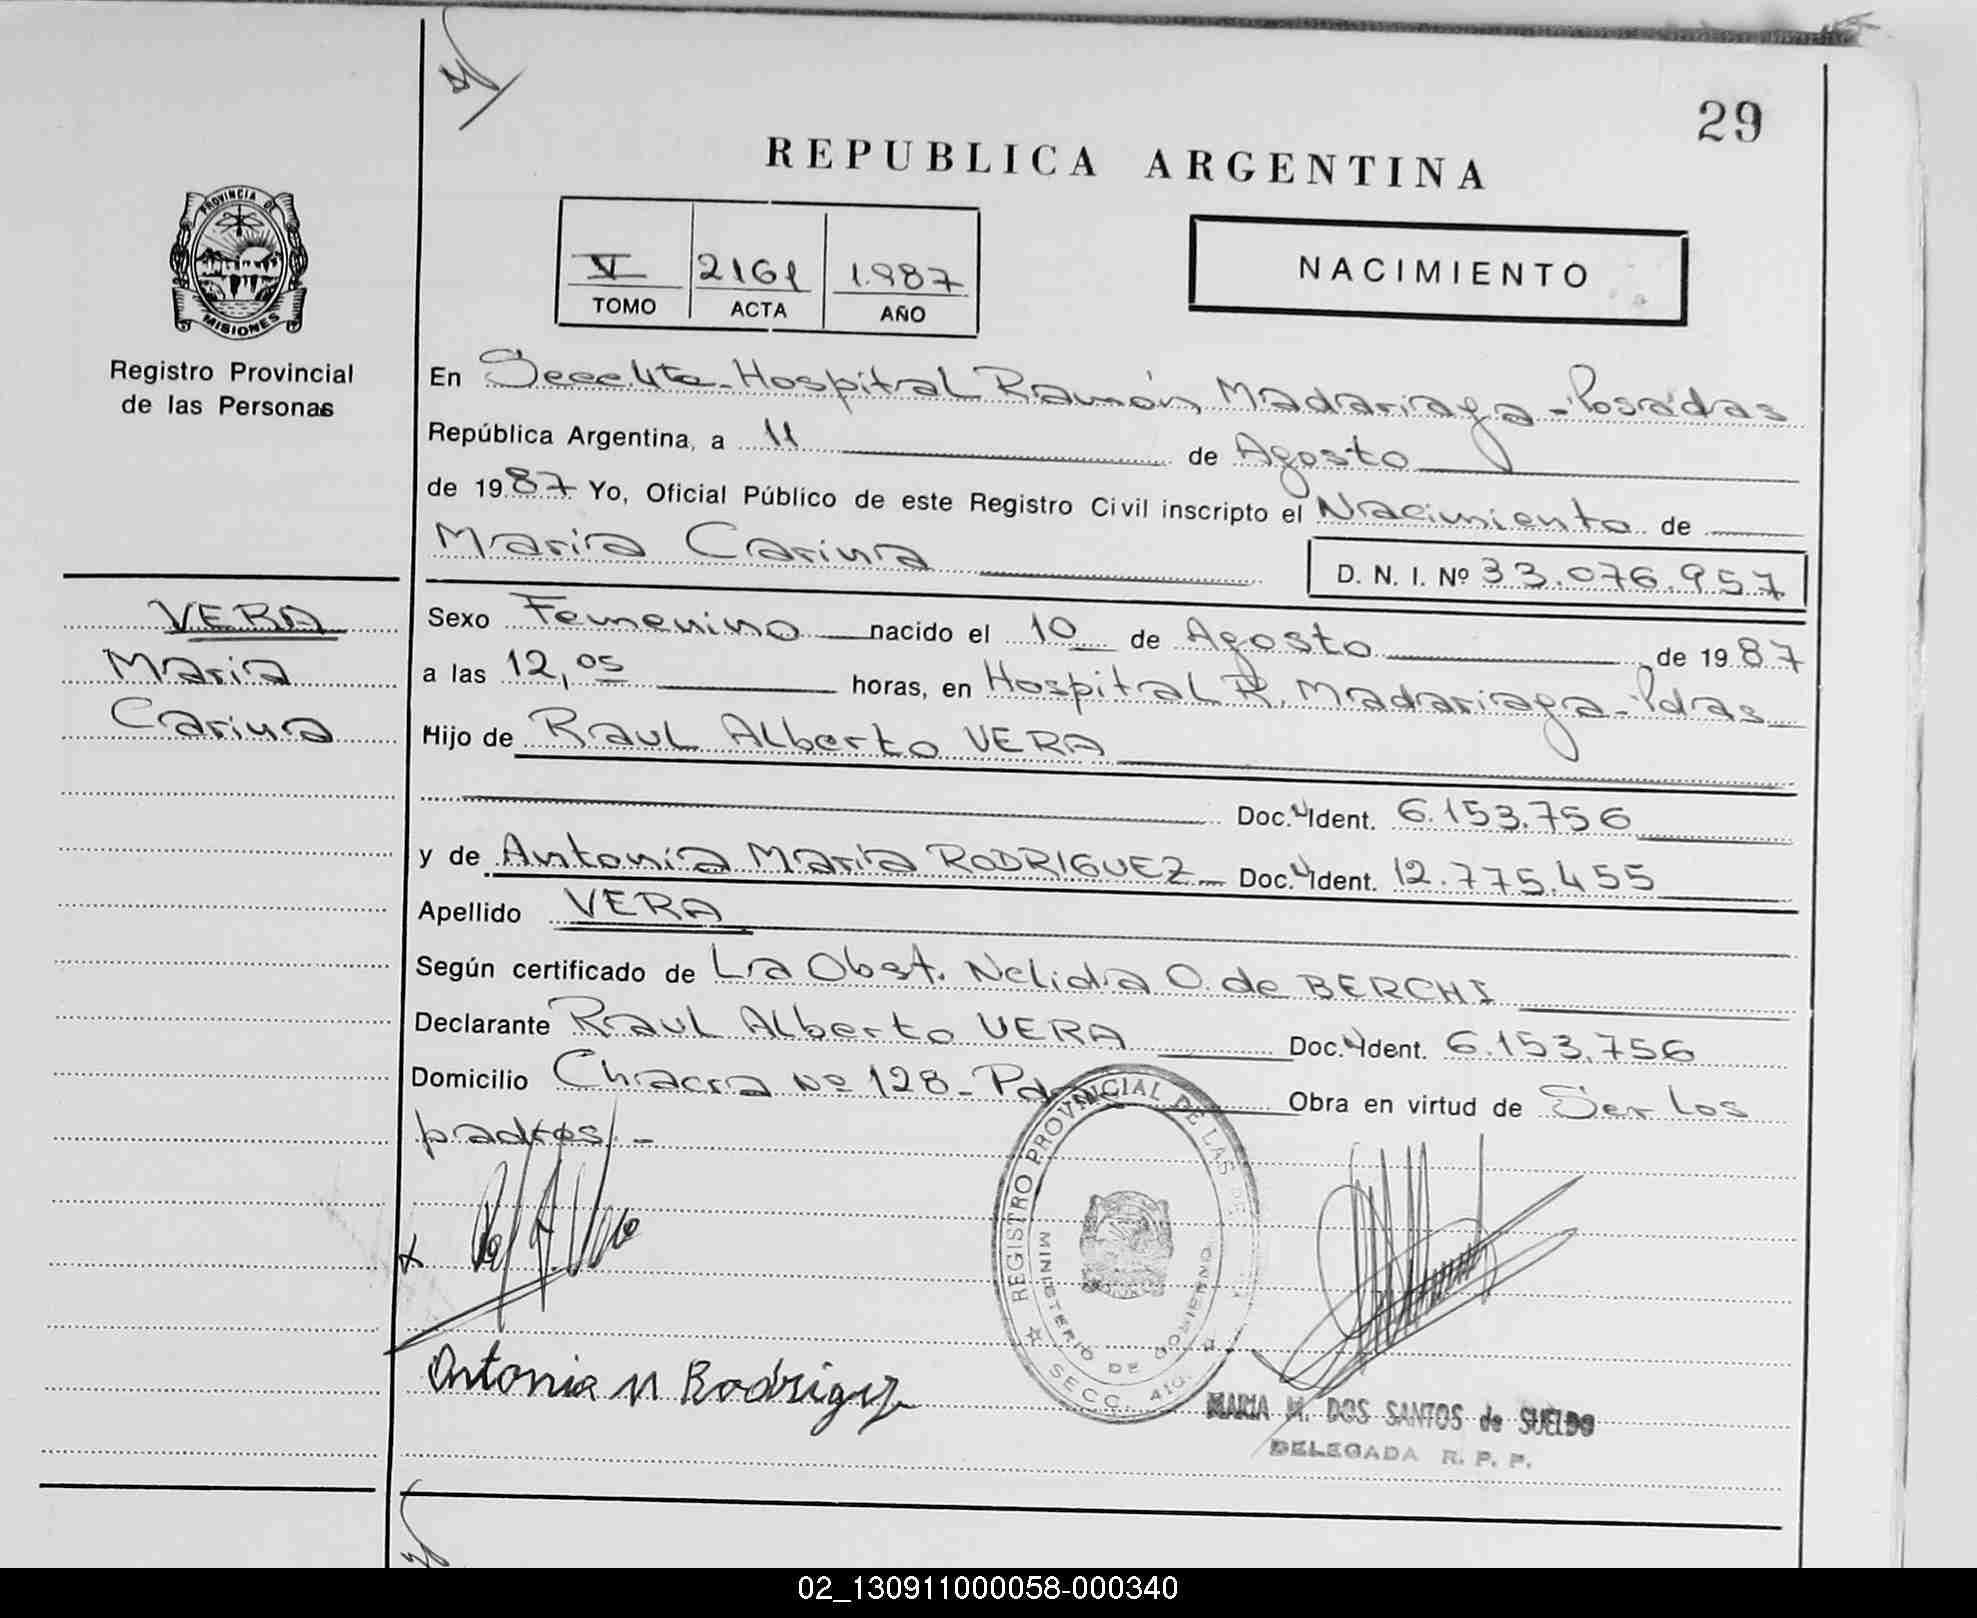 29
REPUBLICA ARGENTINA
V 2161 1.987
TOMO ACTA AÑO
NACIMIENTO
PROVINCIA DE
MISIONES
Registro Provincial
de las Personas
En Hospital Ramón Madariaga - Posadas
República Argentina, a 11 de Agosto
de 1987 Yo, Oficial Público de este Registro Civil inscripto el Nacimiento de
Maria Carina
D. N. I. Nº 33.076.957
VERA
Maria
Carina
Sexo Femenino nacido el 10 de Agosto de 1987
a las 12,05 horas, en Hospital R. Madariaga - Pdas
Hijo de Raul Alberto VERA
Doc. Ident. 6.153.756
y de Antonia Maria RODRIGUEZ Doc. Ident. 12.775.455
Apellido VERA
Según certificado de La Obst. Nelida O. de BERCHI
Declarante Raul Alberto VERA Doc. Ident. 6.153.756
Domicilio Chacra Nº 128 - Obra en virtud de Ser Los
padres. -
REGISTRO PROVINCIAL DE LAS
MINISTERIO DE GOBIERNO
SECC.
Antonia M Rodriguez
MARIA M. DOS SANTOS de SUELDO
DELEGADA R. P. P.
02_130911000058-000340